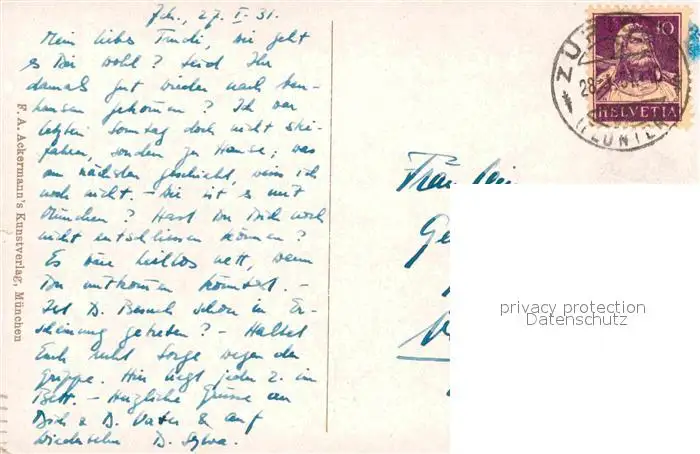 Zch., 27. I. 31.
Mein liebes Trudi, wie geht
es Dir wohl? Seid Ihr
damals gut wieder nach
hausen gekommen? Ich war
letzten Sonntag doch nicht ski-
fahren, sondern zu Hause; was
am nächsten geschieht, weiss ich
noch nicht. - Wie ist es mit
München? Hast Du Dich noch
nicht entschliessen können?
Es wäre heillos nett, wenn
Du mitkommen könntest. -
Ist D. Besuch schon in Er-
scheinung getreten? - Haltet
Euch nicht Sorge wegen der
Grippe. Hier liegt jeder 2. im
Bett. - Herzliche Grüsse an
Dich & D. Vater & auf
Wiedersehn D. Sylva.
F. A. Ackermann's Kunstverlag, München
10
HELVETIA
ZÜR
28.
(FLUNTERN)
Fräulein
privacy protection
Datenschutz